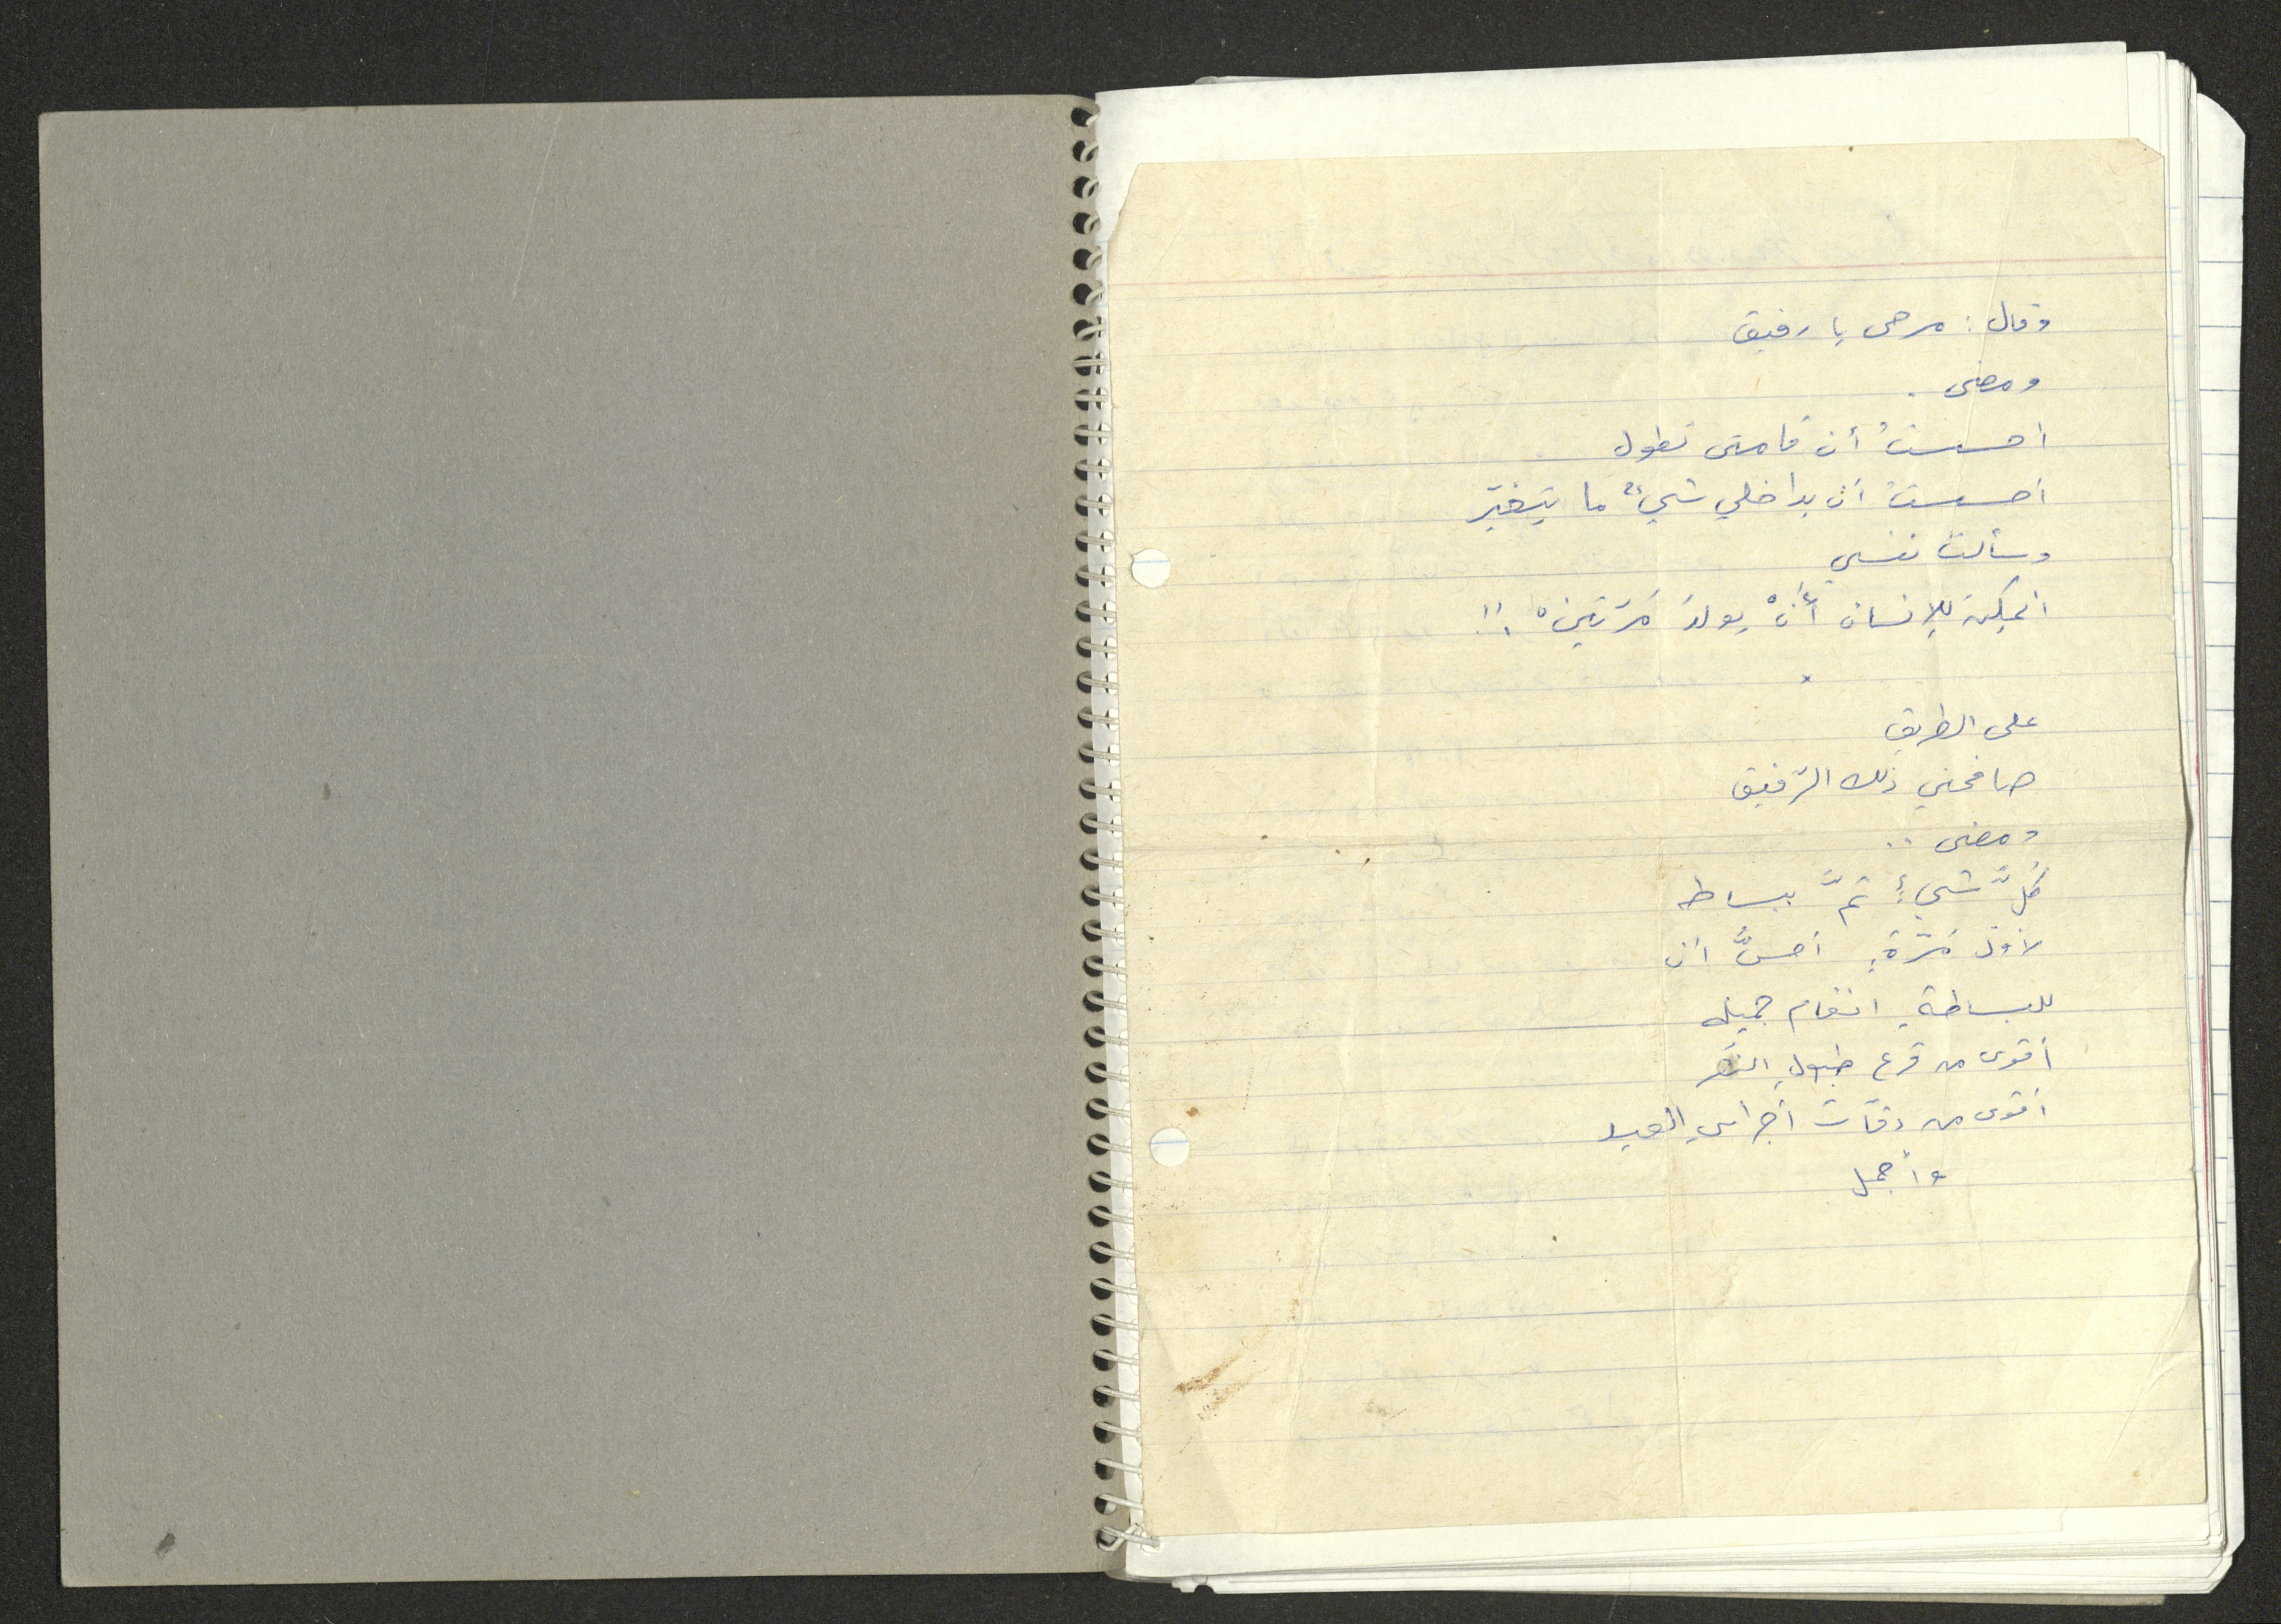 وقال : مرحى يا رفيق
ومضى .
احسستُ أن قامتي تطول
أحسستُ أن بداخلي شيءٌ ما يتغيّر
وسألت نفسي
أيمكن للإنسان أنْ يولدَ مَرّتينْ !!
×
على الطريق
صافحني ذلك الرّفيق
ومضى ..
كلُّ شيءٍ تمَّ ببساطه
لأوّل مَرّةٍ أحسُّ أن
للبساطةِ انغام جميله
أقوى من قرع طبول
أقوى من دقّات أجراسِ العيد
وأجمل